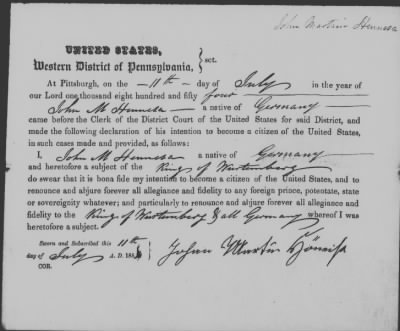 John Martin Hennesa
UNITED STATES,
Western District of Pennsylvania, } sct.
At Pittsburgh, on the — 11th — day of July in the year of
our Lord one thousand eight hundred and fifty four
John M Hennesa — a native of Germany
came before the Clerk of the District Court of the United States for said District, and
made the following declaration of his intention to become a citizen of the United States,
in such cases made and provided, as follows:
I, John M Hennesa a native of Germany
and heretofore a subject of the King of Wurtemberg
do swear that it is bona fide my intention to become a citizen of the United States, and to
renounce and abjure forever all allegiance and fidelity to any foreign prince, potentate, state
or sovereignty whatever; and particularly to renounce and abjure forever all allegiance and
fidelity to the King of Wurtemberg & all Germany whereof I was
heretofore a subject.
Sworn and Subscribed this 11th
day of July A. D. 185
COR.
Johan Martin